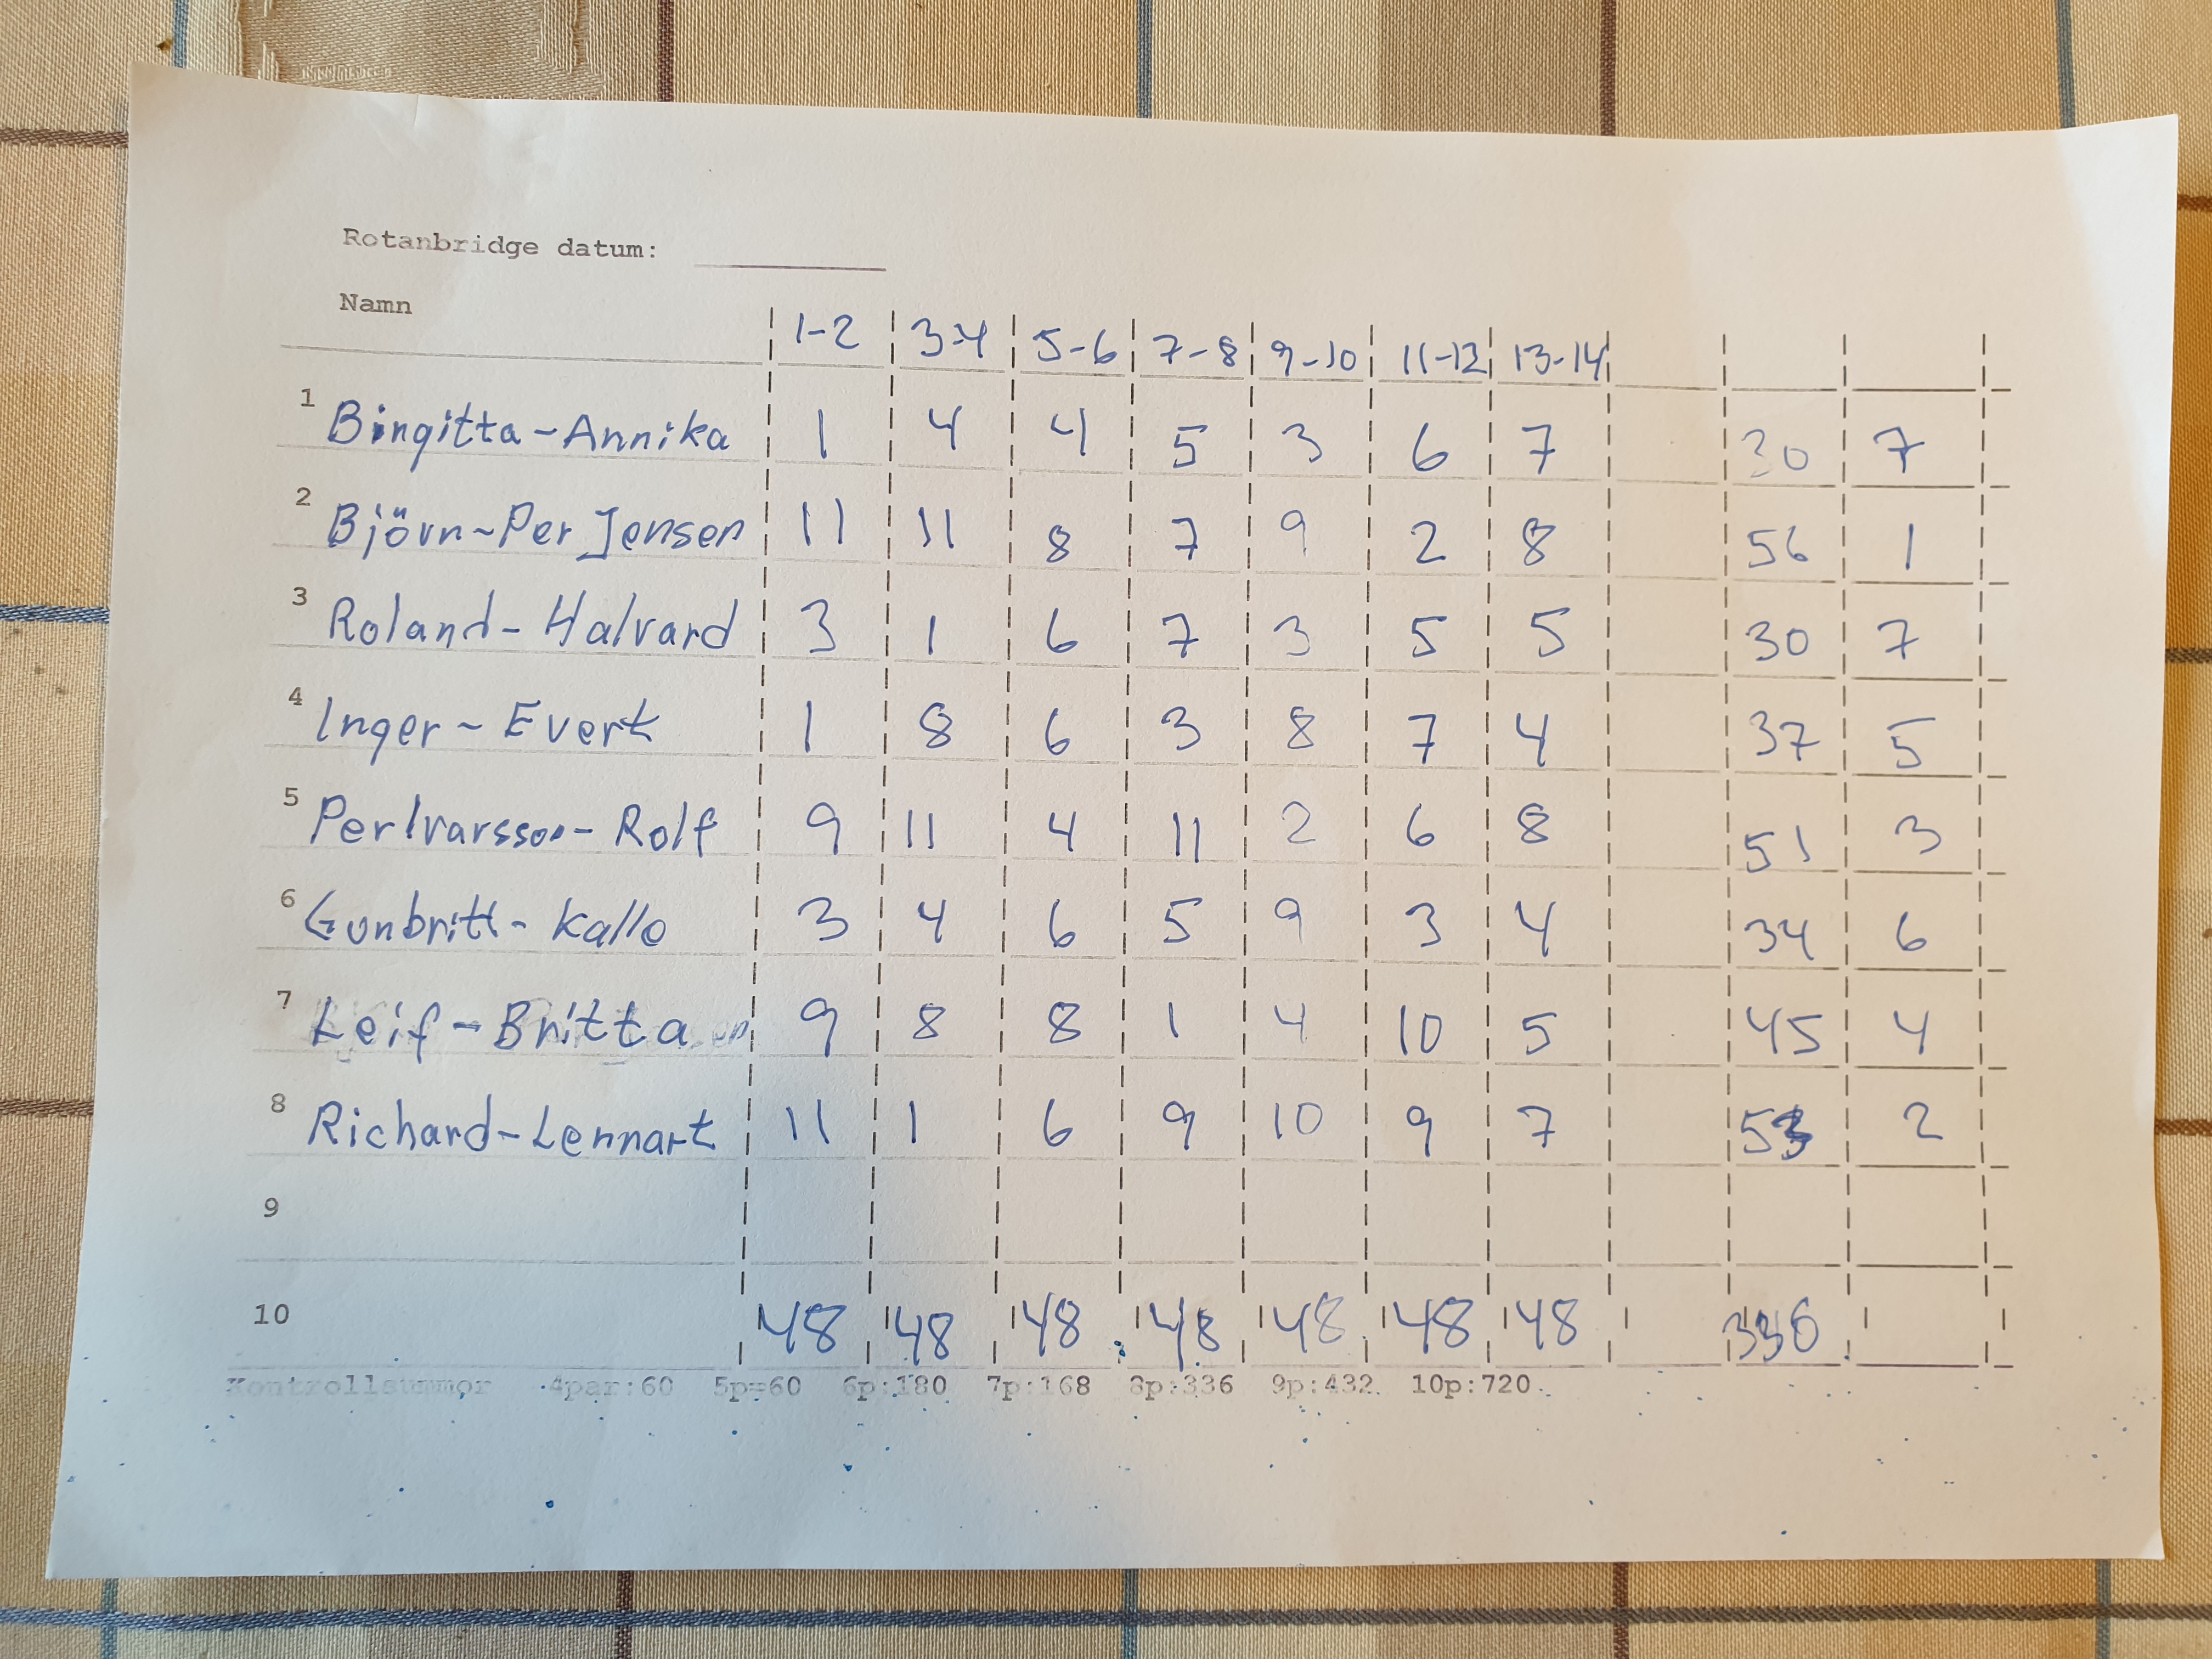 Rotanbridge datum:
Namn 1-2 3-4 5-6 7-8 9-10 11-12 13-14
1 Birgitta-Annika 1 4 4 5 3 6 7 30 7
2 Björn-Per Jensen 11 11 8 7 9 2 8 56 1
3 Roland-Halvard 3 1 6 7 3 5 5 30 7
4 Inger-Evert 1 8 6 3 8 7 4 37 5
5 Per Ivarsson-Rolf 9 11 4 11 2 6 8 51 3
6 Gunbritt-Kalle 3 4 6 5 9 3 4 34 6
7 Leif-Britta 9 8 8 1 4 10 5 45 4
8 Richard-Lennart 11 1 6 9 10 9 7 53 2
9
10 48 48 48 48 48 48 48 336
Kontrollsummor 4par:60 5p=60 6p:180 7p:168 8p:336 9p:432 10p:720